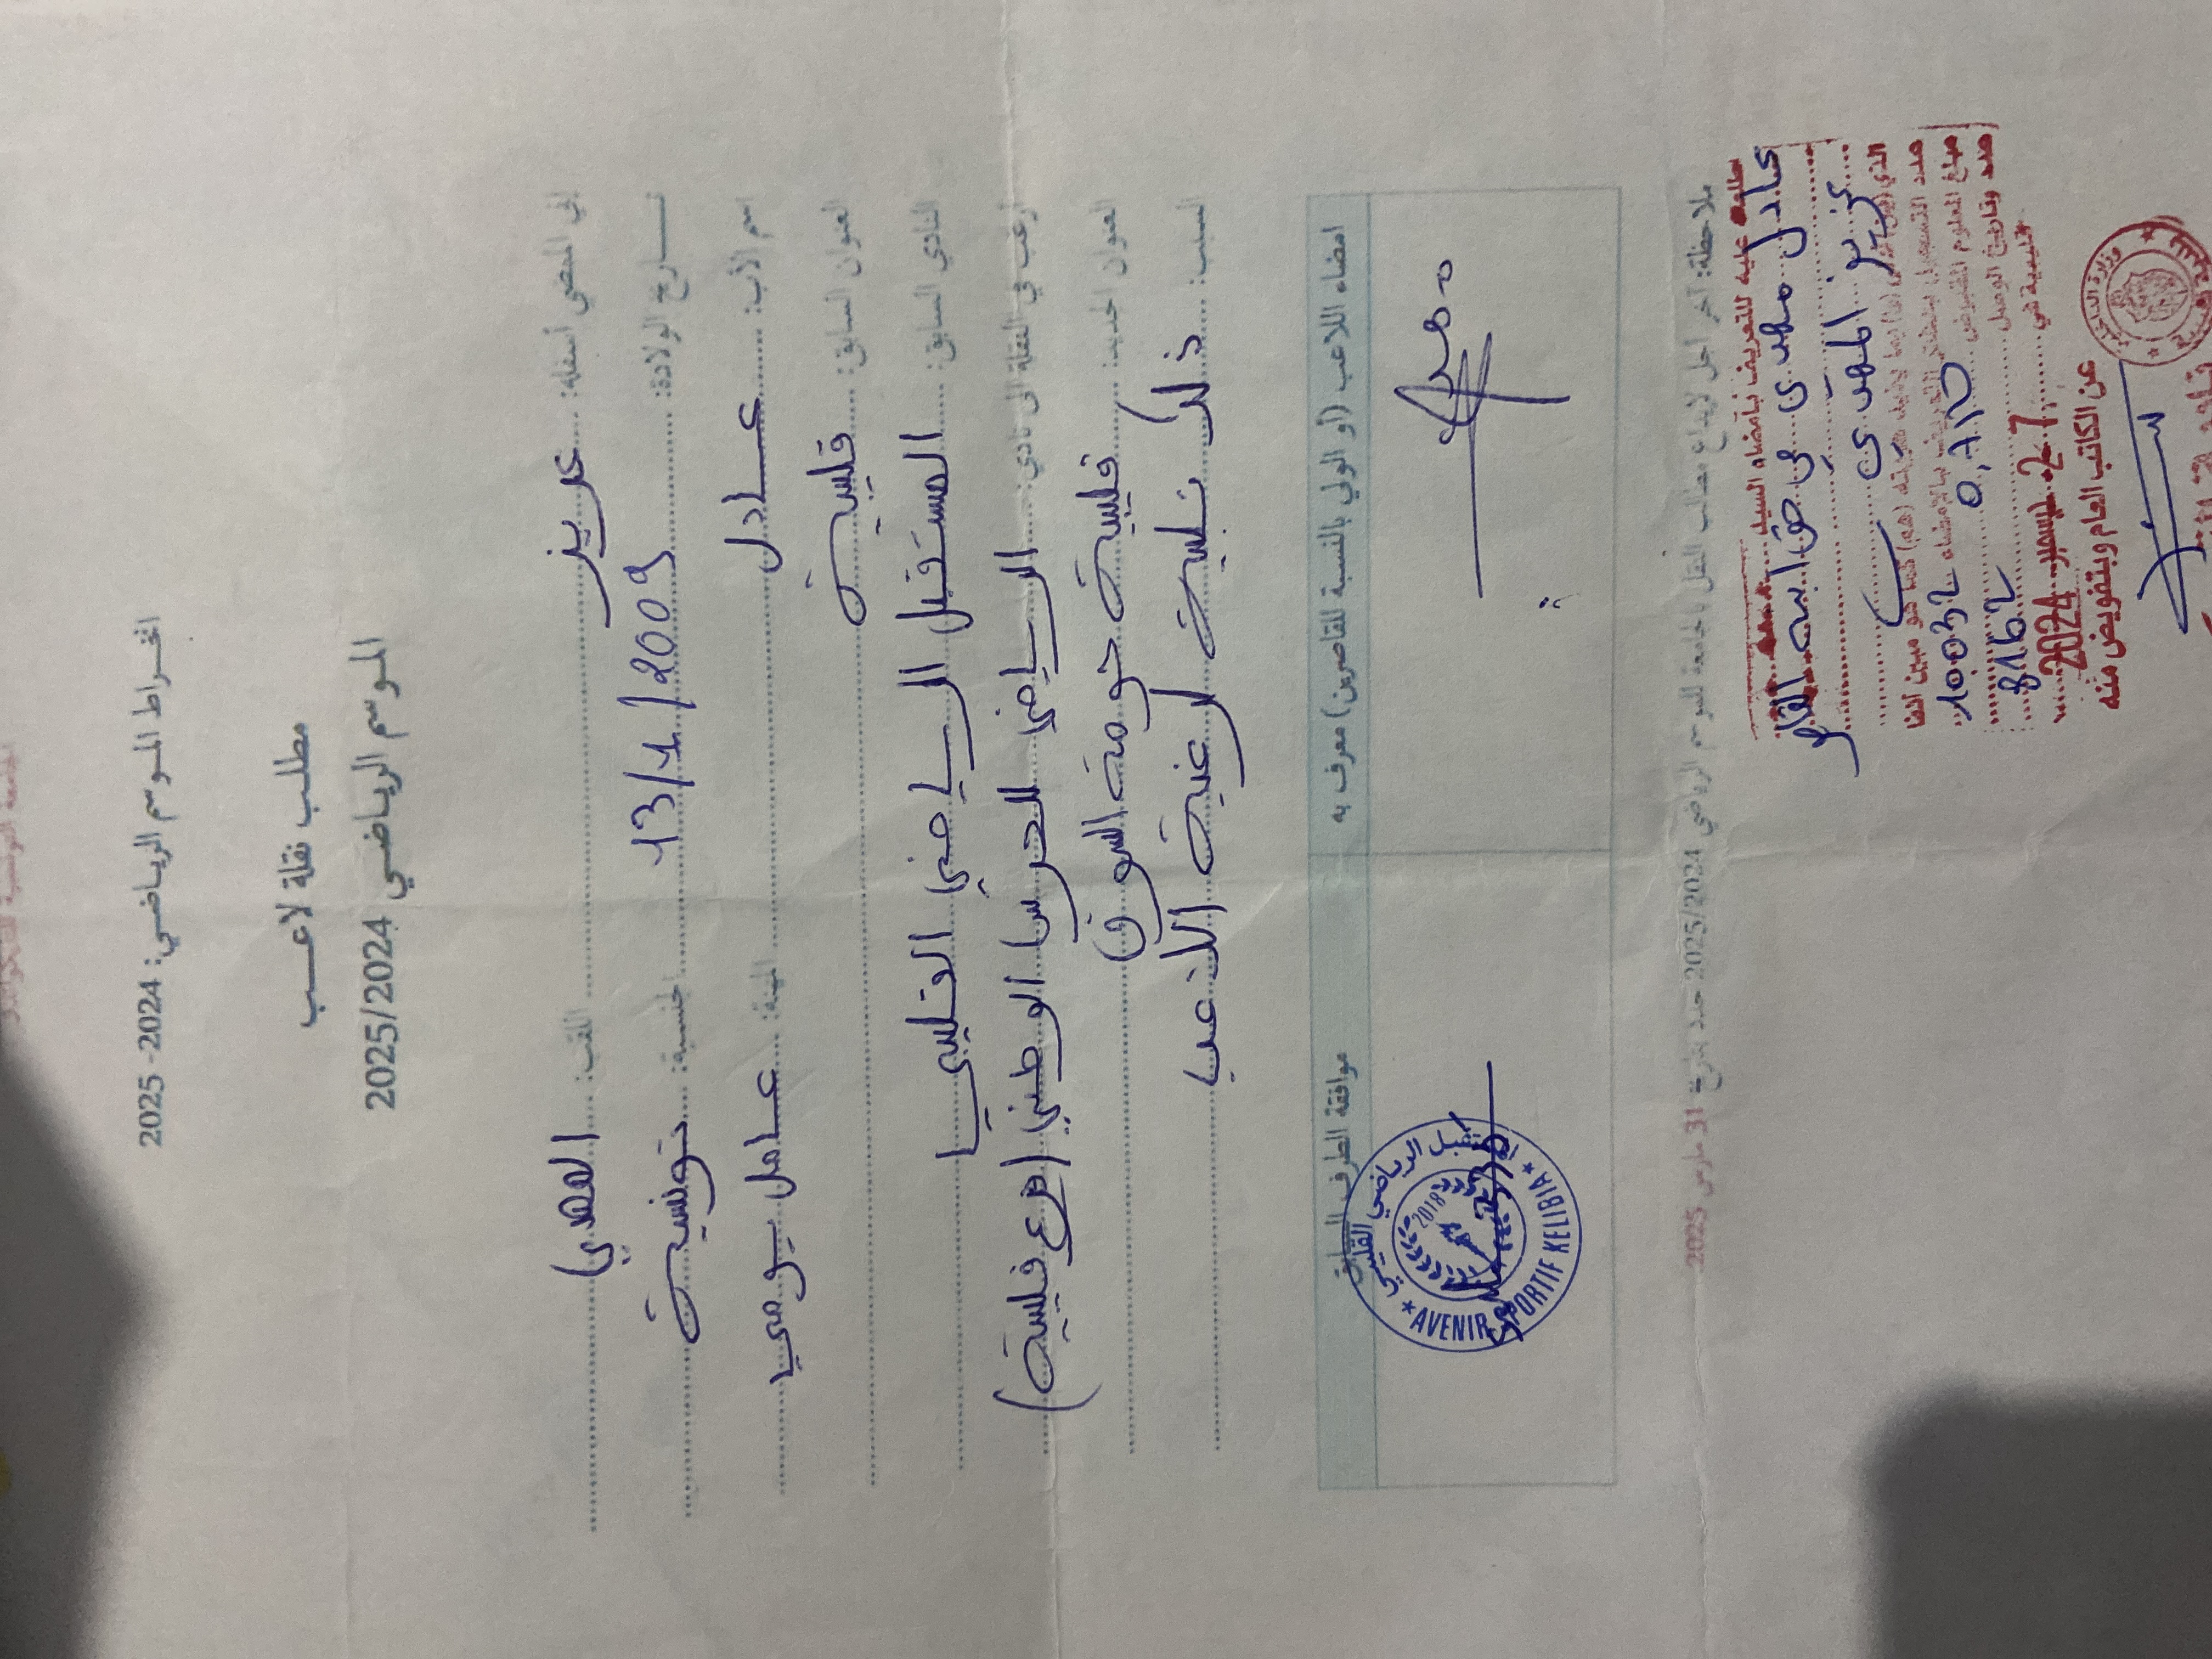 الانخراط الموسم الرياضي: 2024- 2025
مطلب نقلة لاعب
الموسم الرياضي 2025/2024
إني الممضي أسفله: عزيز اللقب: المهدي
تاريخ الولادة: 13/1/2009 الجنسية: تونسية
اسم الأب: عادل المهنة: عامل يومي
العنوان السابق: قليبية
النادي السابق: المستقبل الرياضي القليبي
أرغب في النقلة الى نادي: الرياضي للحرس الوطني (فرع قليبية)
العنوان الجديد: قليبية حومة السوق
السبب: تلبية لرغبة اللاعب
امضاء اللاعب (أو الولي بالنسبة للقاصرين) معرف به
موافقة الطرف السابق
المستقبل الرياضي القليبي
2018
AVENIR SPORTIF KELIBIA
ملاحظة: آخر أجل لإيداع مطالب النقل بالجامعة للموسم الرياضي 2025/2024 حدد بتاريخ 31 مارس 2025
عليه للتعريف بإمضاء السيد
عادل مهدي في حق ابنه القاصر
عزيز المهدي
كما هو مبين أعلاه
عدد التسجيل بدفتر التعريف بالإمضاء 10032
مبلغ المعلوم المقبوض
عدد وتاريخ الوصل 8162
قليبية في 27 ديسمبر 2024
عن الكاتب العام وبتفويض منه
وزارة الداخلية